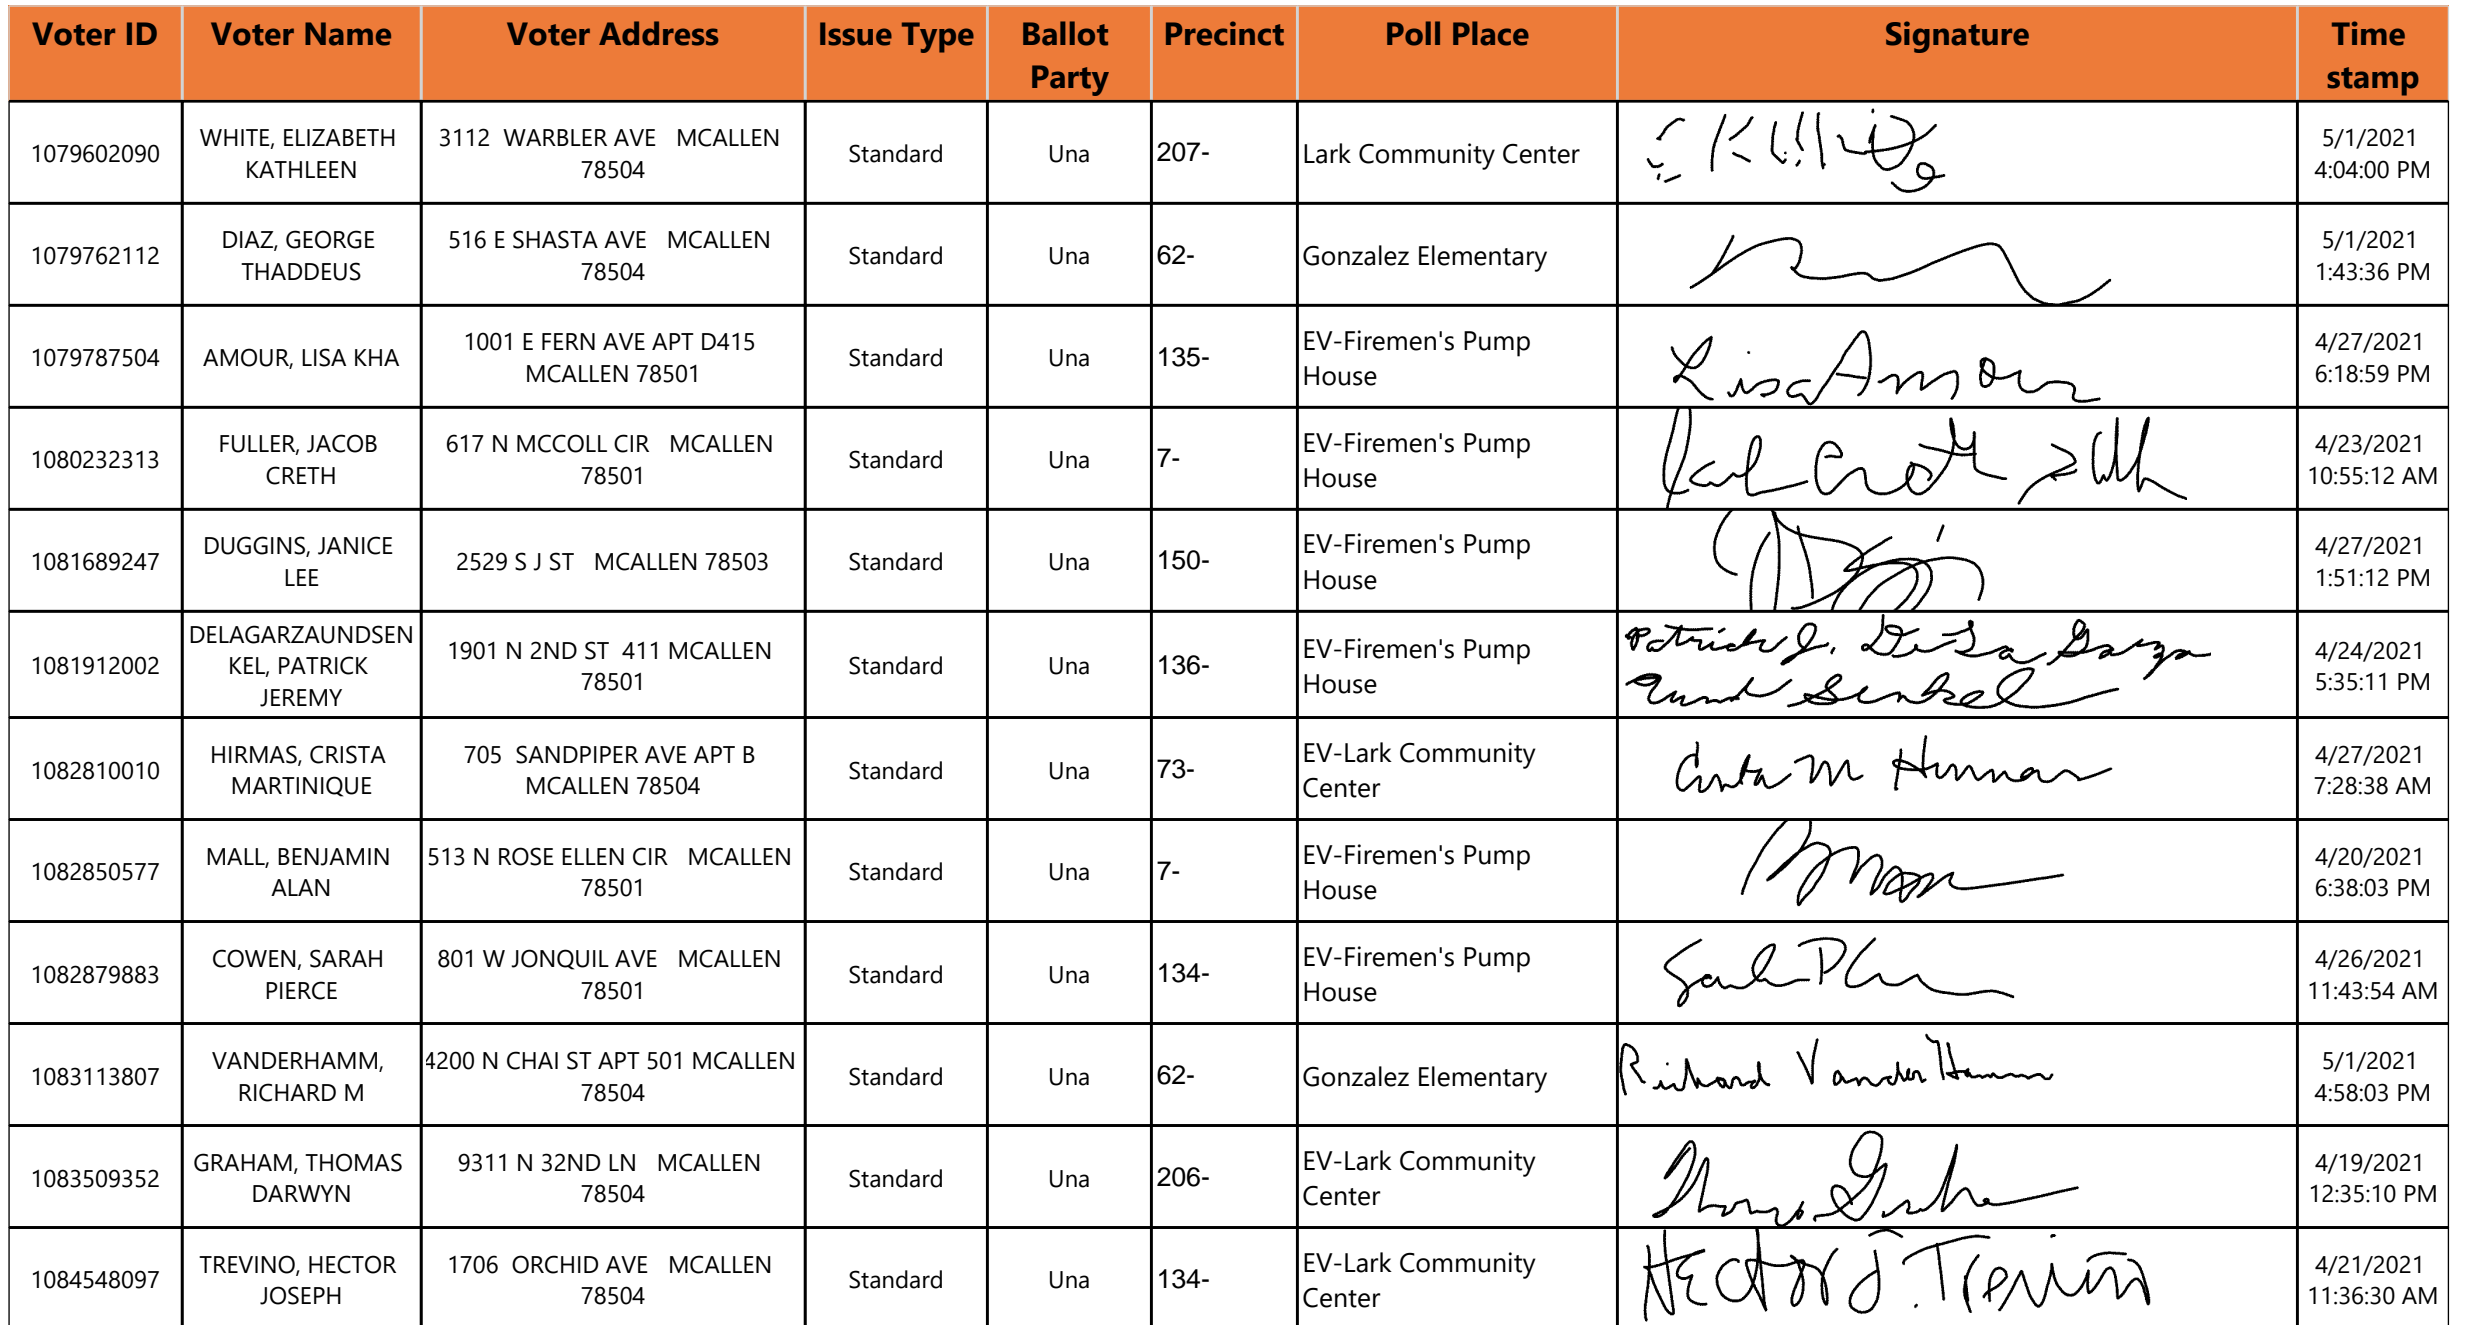 Voter ID Voter Name Voter Address Issue Type Ballot Party Precinct Poll Place Signature Time stamp
1079602090 WHITE, ELIZABETH KATHLEEN 3112 WARBLER AVE MCALLEN 78504 Standard Una 207- Lark Community Center 5/1/2021 4:04:00 PM
1079762112 DIAZ, GEORGE THADDEUS 516 E SHASTA AVE MCALLEN 78504 Standard Una 62- Gonzalez Elementary 5/1/2021 1:43:36 PM
1079787504 AMOUR, LISA KHA 1001 E FERN AVE APT D415 MCALLEN 78501 Standard Una 135- EV-Firemen's Pump House Lisa Amour 4/27/2021 6:18:59 PM
1080232313 FULLER, JACOB CRETH 617 N MCCOLL CIR MCALLEN 78501 Standard Una 7- EV-Firemen's Pump House 4/23/2021 10:55:12 AM
1081689247 DUGGINS, JANICE LEE 2529 S J ST MCALLEN 78503 Standard Una 150- EV-Firemen's Pump House 4/27/2021 1:51:12 PM
1081912002 DELAGARZAUNDSEN KEL, PATRICK JEREMY 1901 N 2ND ST 411 MCALLEN 78501 Standard Una 136- EV-Firemen's Pump House Patrick J. De La Garza Und Senkel 4/24/2021 5:35:11 PM
1082810010 HIRMAS, CRISTA MARTINIQUE 705 SANDPIPER AVE APT B MCALLEN 78504 Standard Una 73- EV-Lark Community Center Crista M Hirmas 4/27/2021 7:28:38 AM
1082850577 MALL, BENJAMIN ALAN 513 N ROSE ELLEN CIR MCALLEN 78501 Standard Una 7- EV-Firemen's Pump House 4/20/2021 6:38:03 PM
1082879883 COWEN, SARAH PIERCE 801 W JONQUIL AVE MCALLEN 78501 Standard Una 134- EV-Firemen's Pump House 4/26/2021 11:43:54 AM
1083113807 VANDERHAMM, RICHARD M 4200 N CHAI ST APT 501 MCALLEN 78504 Standard Una 62- Gonzalez Elementary Richard VanderHamm 5/1/2021 4:58:03 PM
1083509352 GRAHAM, THOMAS DARWYN 9311 N 32ND LN MCALLEN 78504 Standard Una 206- EV-Lark Community Center 4/19/2021 12:35:10 PM
1084548097 TREVINO, HECTOR JOSEPH 1706 ORCHID AVE MCALLEN 78504 Standard Una 134- EV-Lark Community Center Hector J. Trevino 4/21/2021 11:36:30 AM